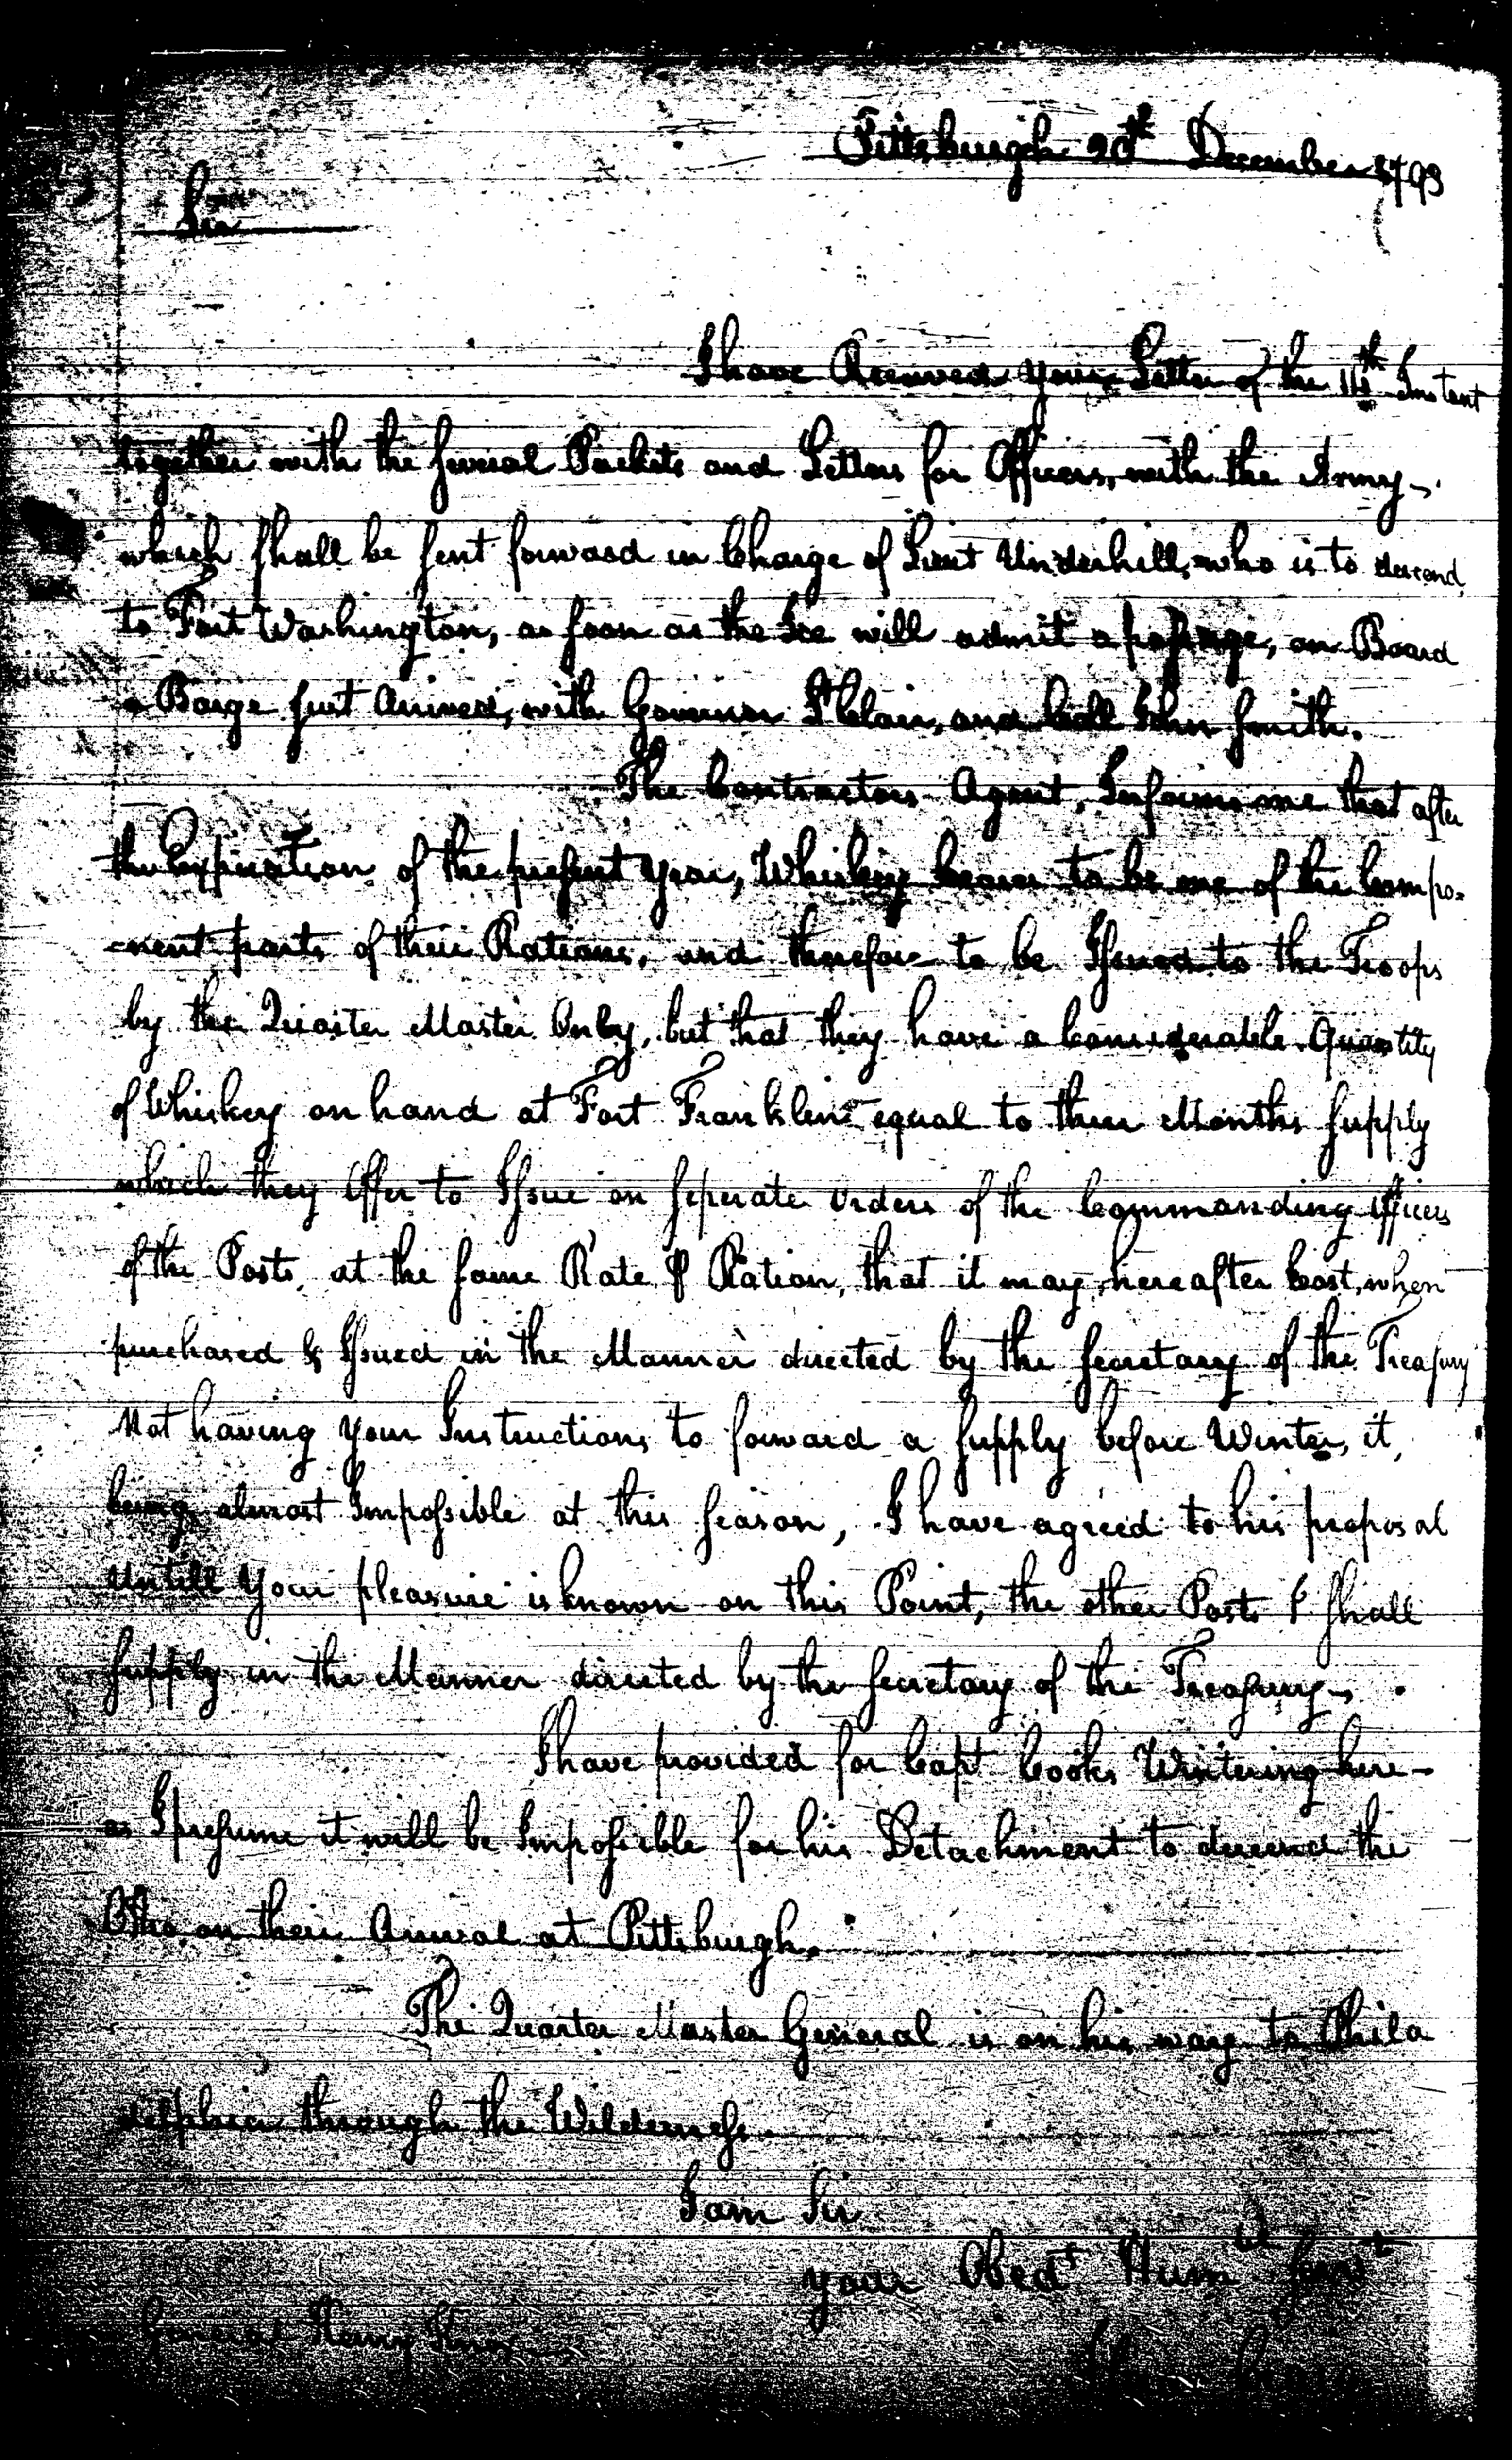 Pittsburgh 20th December 1793
Sir
I have Received your Letter of the 14th Instant
together with the several Packets and Letters for Officers, with the Army,
which shall be sent forward in Charge of Lieut Underhill, who is to descend
to Fort Washington, as soon as the Ice will admit a passage, on Board
a Barge just Arrived, with Governor St Clair, and Coll John Smith.
The Contractors Agent, Informs me that after
the Expiration of the present year, Whiskey ceases to be one of the Compo-
-nent parts of their Rations, and therefore to be Issued to the Troops
by the Quarter Master Only, but that they have a Considerable Quantity
of Whiskey on hand at Fort Franklin equal to three Months supply
which they Offer to Issue on seperate Orders of the Commanding Officers
of the Posts, at the same Rate ⅌ Ration, that it may hereafter Cost, when
purchased & Issued in the Manner directed by the Secretary of the Treasury
Not having your Instructions to forward a supply before Winter, it,
being almost Impossible at this season, I have agreed to his proposal
untill your pleasure is known on this Point, the other Posts I shall
supply in the Manner directed by the Secretary of the Treasury,
I have provided for Capt Cooks Wintering here-
as I presume it will be Impossible for his Detachment to descend the
Ohio, on their Arrival at Pittsburgh.
The Quarter Master General is on his way to Phila
delphia through the Wilderness.
I am Sir
your Obedt Humbl Servt
General Henry Knox